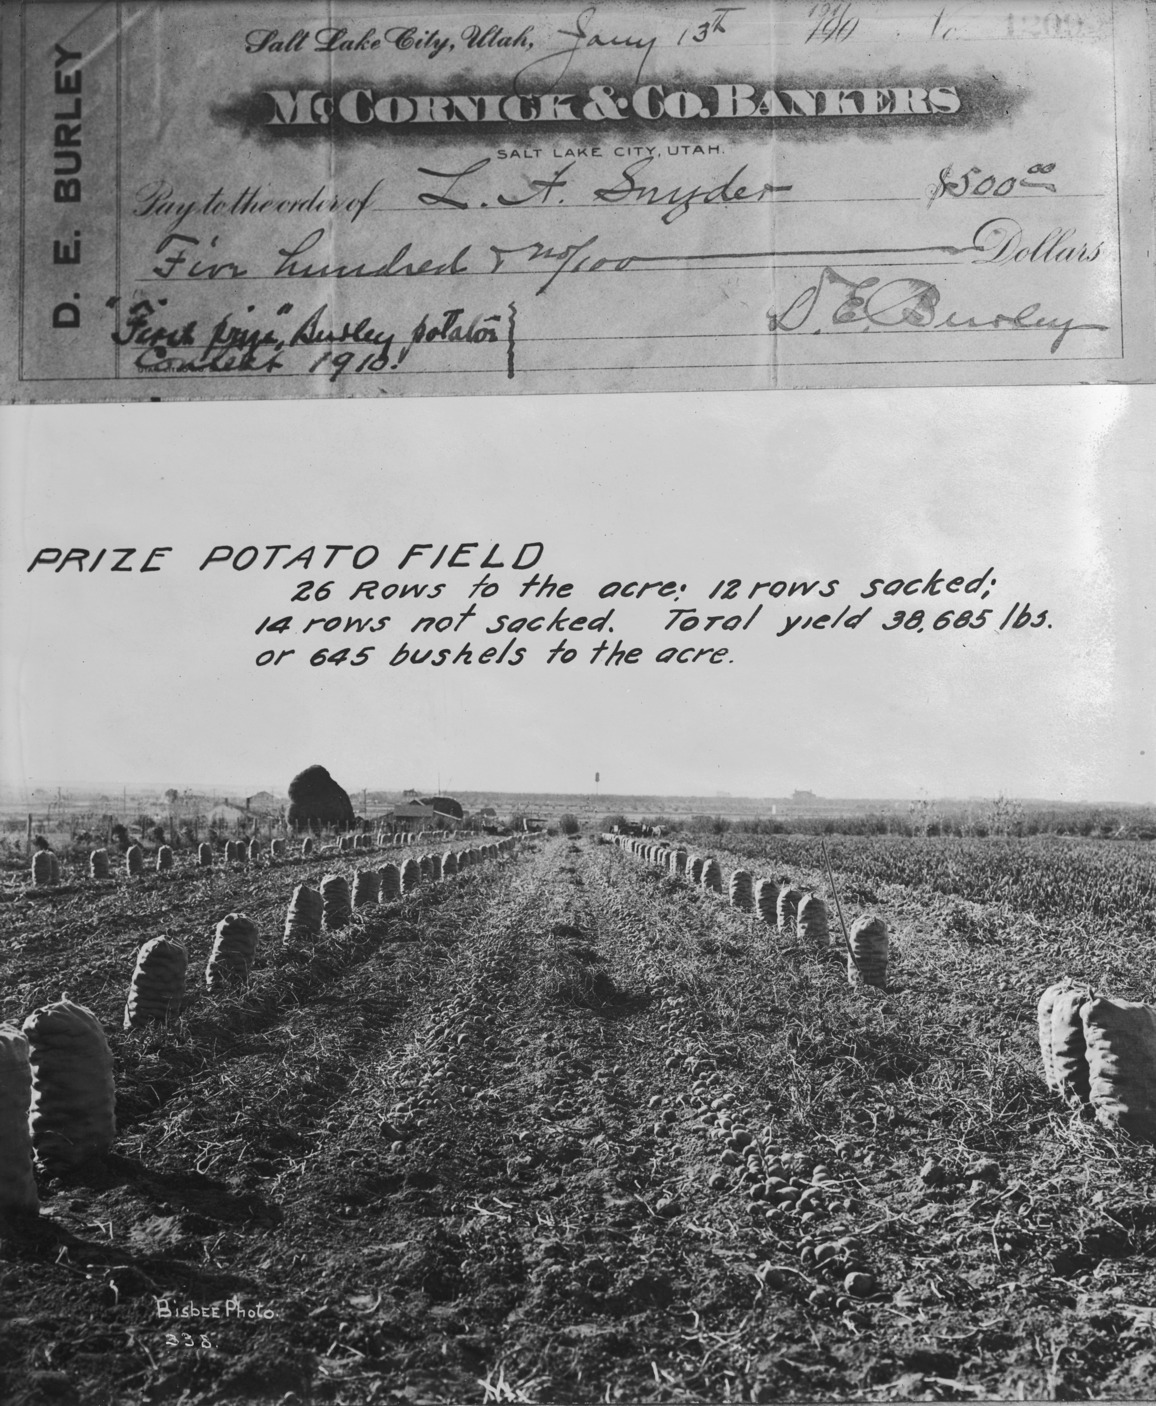 D. E. BURLEY
Salt Lake City, Utah, Jany 13th 190 No. 1209
McCORNICK & CO. BANKERS
SALT LAKE CITY, UTAH.
Pay to the order of L. A. Snyder $500.00
Five hundred & no/100 Dollars
"First prize", Burley potatoe
Contest 1910.
D. E. Burley
PRIZE POTATO FIELD
26 Rows to the acre; 12 rows sacked;
14 rows not sacked. Total yield 38,685 lbs.
or 645 bushels to the acre.
Bisbee Photo.
338.